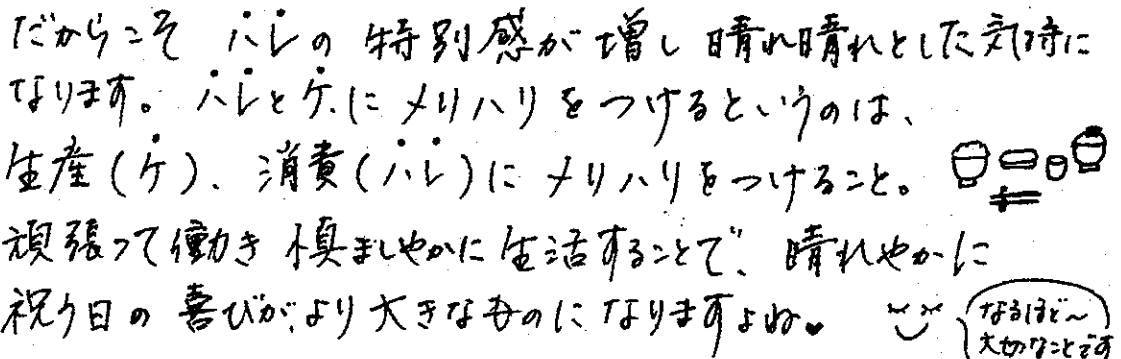 だからこそ ハレの 特別感が増し 晴れ晴れとした気持に
なります。ハレとケにメリハリをつけるというのは、
生産(ケ)、消費(ハレ)にメリハリをつけること。
頑張って働き 慎ましやかに生活することで、晴れやかに
祝う日の 喜びが、より大きなものになりますよね♥
なるほど〜
大切なことです